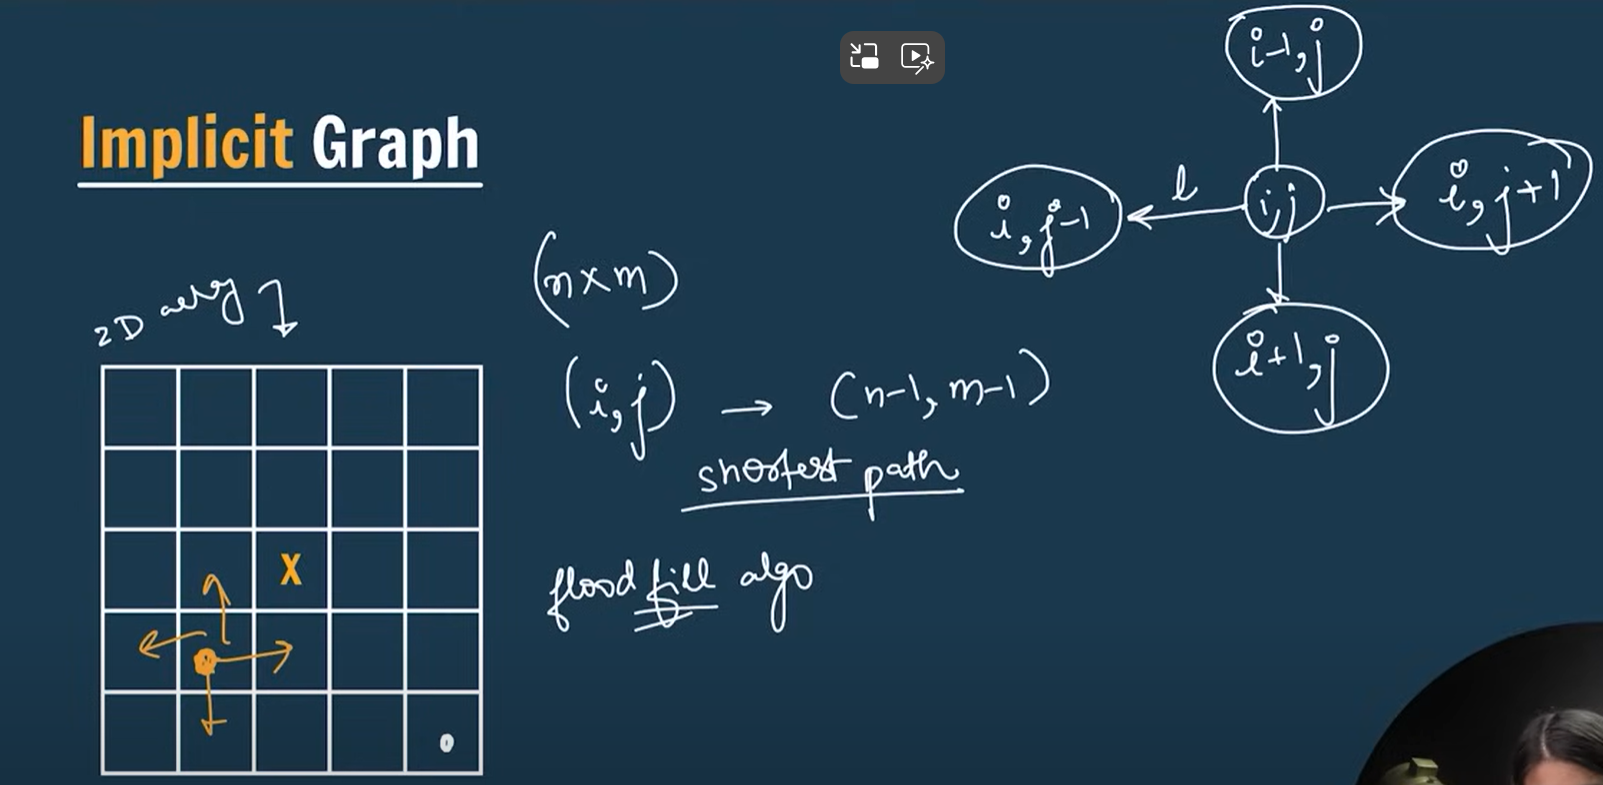 Implicit Graph
2D
(n×m)
(i,j) → (n-1, m-1)
shortest path
flood fill algo
X
i-1,j
i,j-1
l
i,j
i,j+1
i+1,j